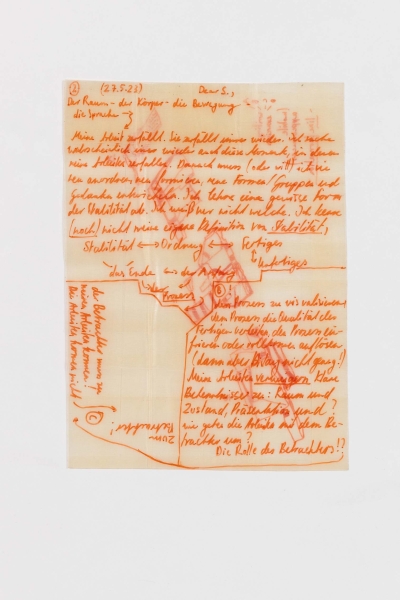 ② (27.5.23) Dear S.,
Der Raum - der Körper - die Bewegung
die Sprache →
Meine Arbeit zerfällt. Sie zerfällt immer wieder. ich suche
wahrscheinlich immer wieder auch diese Momente, in denen
meine Arbeiten zerfallen. Danach muss (oder will) ich sie
neu anordnen, neu formieren, neue Formen/Gruppen und
Gedanken entwickeln. Ich lehne eine gewisse Form
der Stabilität ab. Ich weiß nur nicht welche. Ich kenne
(noch) nicht meine eigene Definition von Stabilität,
Stabilität ↔ Ordnung ↔ Fertiges
↳ Unfertiges
das Ende ↔ der Anfang
der Prozess
Ⓑ!
Den Prozess zu visualisieren,
dem Prozess die Qualität des
Fertigen verleihen, den Prozess
frieren oder vollkommen auflösen
(dann aber bitte nicht ganz!)
Meine Arbeiten verweigern klare
Bekenntnisse zu: Raum und
Zustand, Präsentation und ?
wie gehen die Arbeiten mit dem Be-
trachter um?
Die Rolle des Betrachters!?
Ⓒ
zum
Betrachter!
der Betrachter muss zu
meinen Arbeiten kommen!
Die Arbeiten kommen nicht